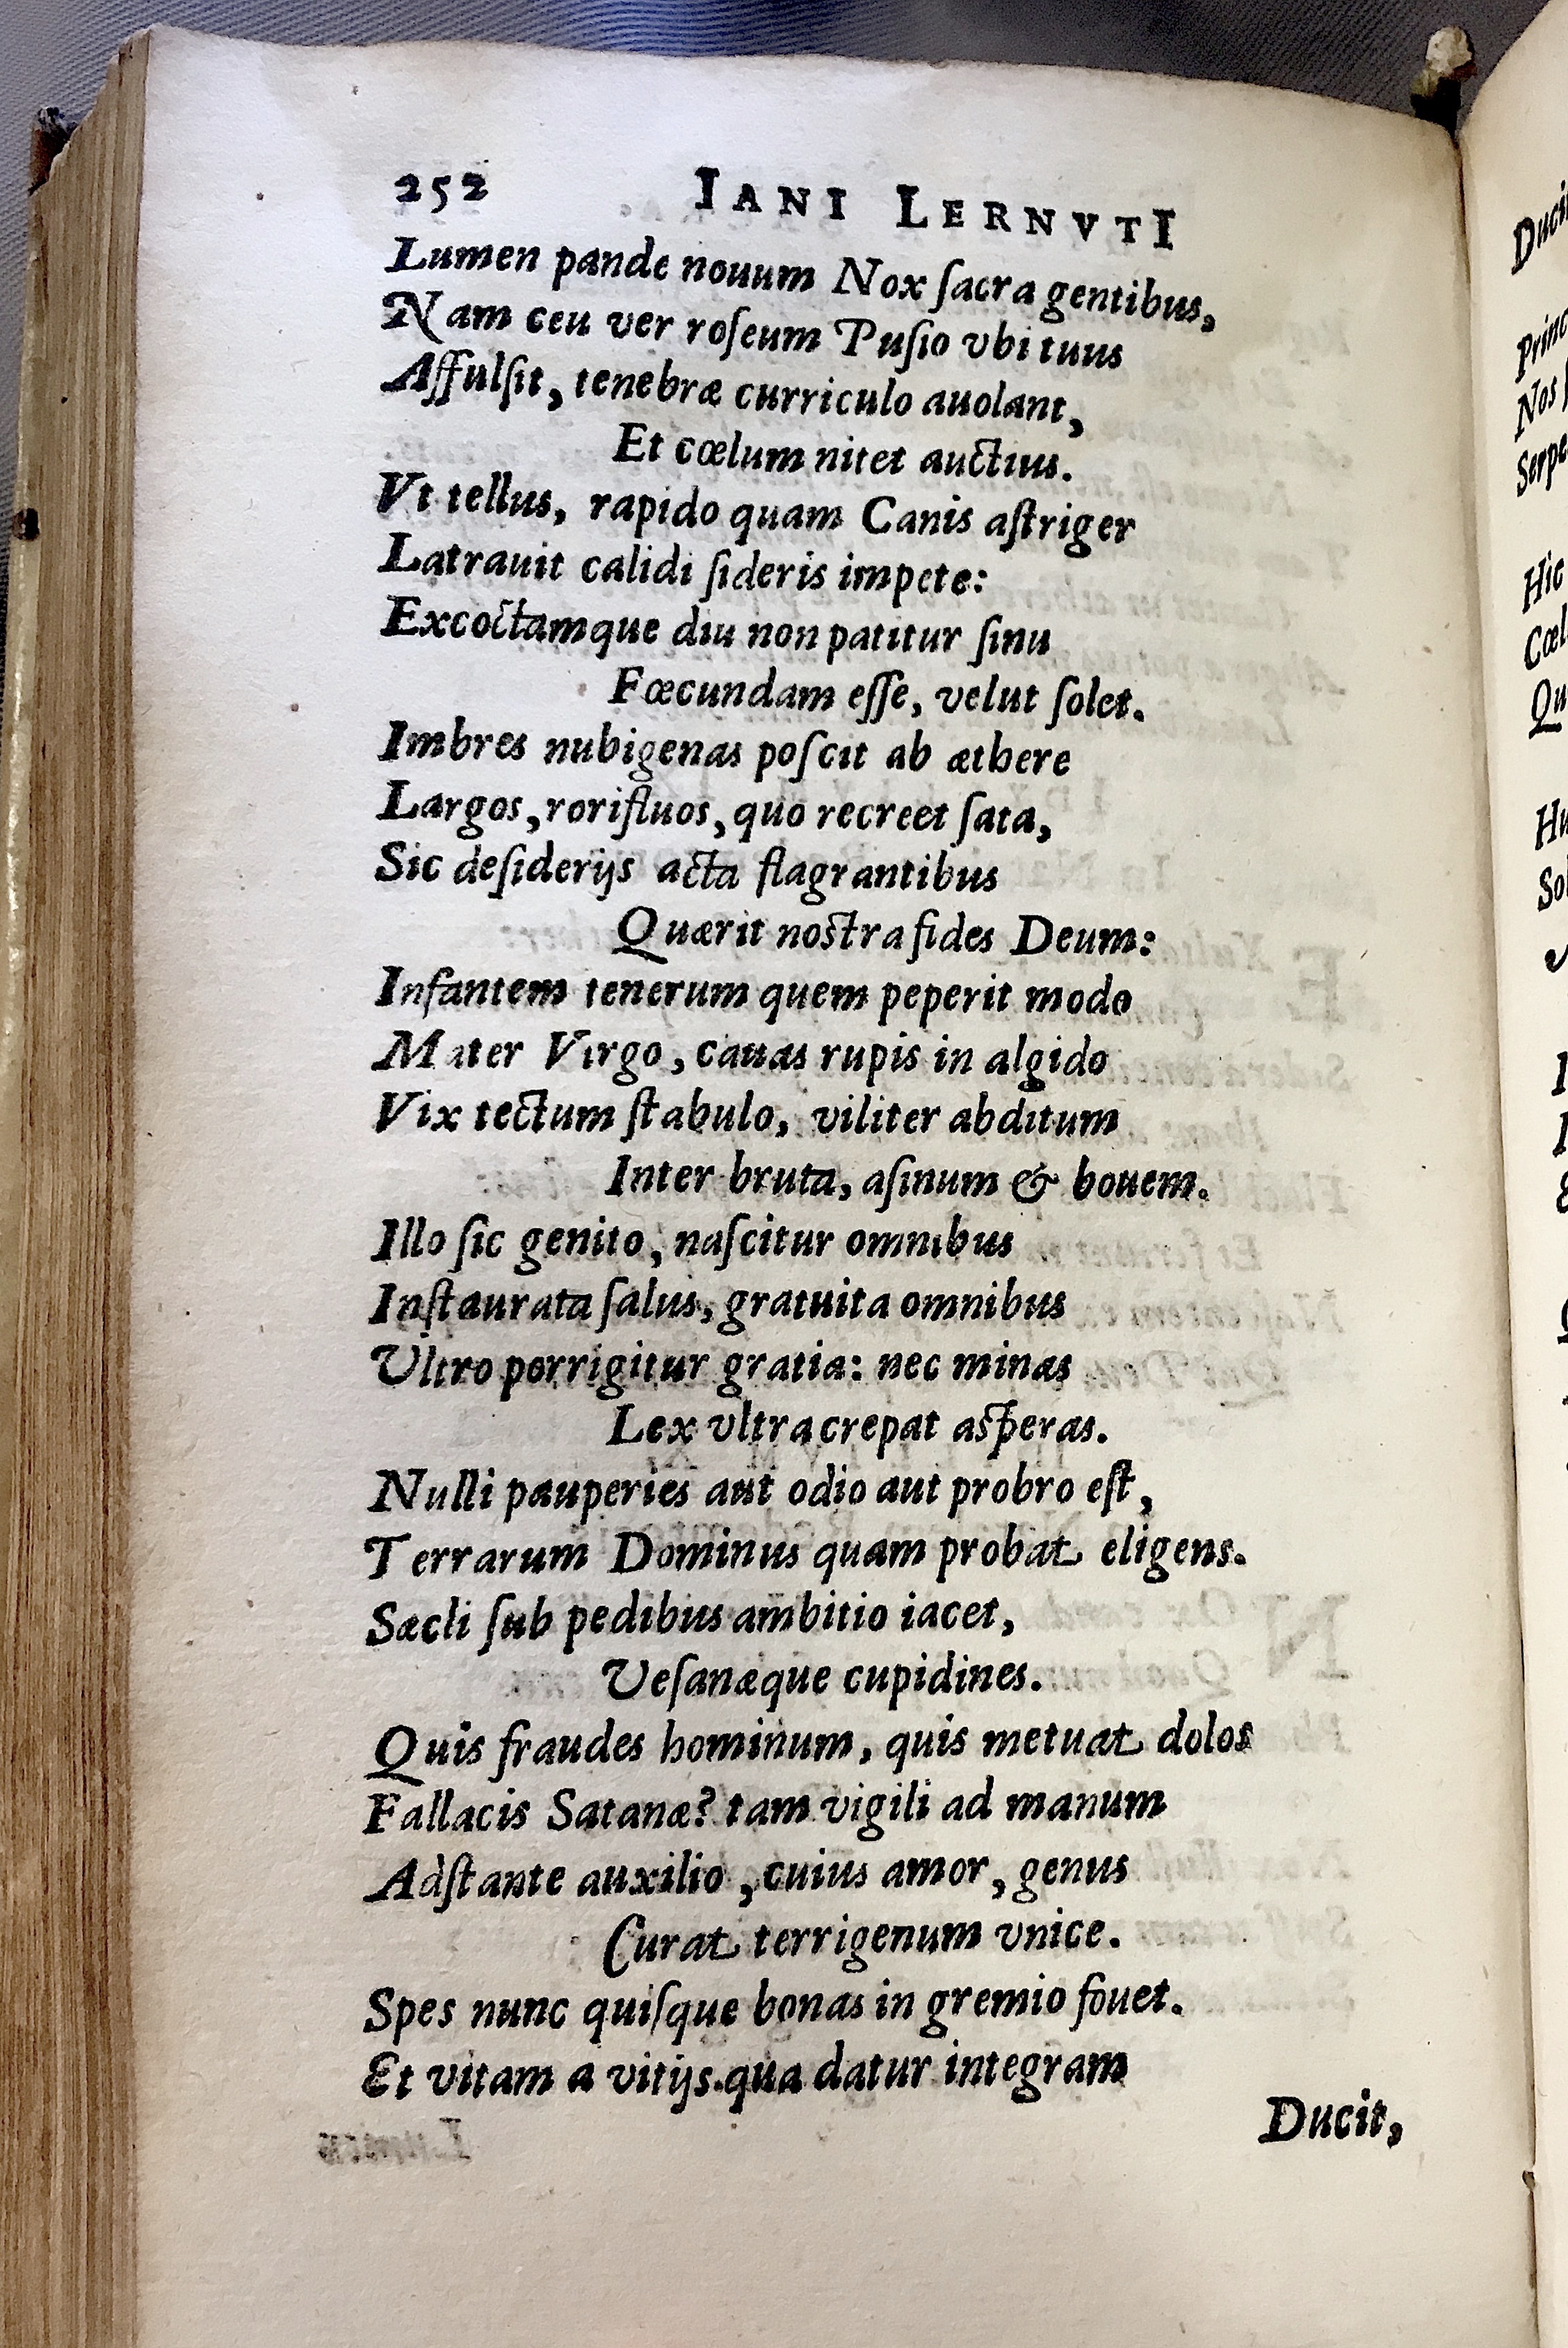 252 IANI LERNVTI
Lumen pande nouum Nox ſacra gentibus,
Nam ceu ver roſeum Puſio vbi tuus
Affulſit, tenebræ curriculo auolant,
Et cœlum nitet auctius.
Vt tellus, rapido quam Canis aſtriger
Latrauit calidi ſideris impete:
Excoctamque diu non patitur ſinu
Fœcundam eſſe, velut ſolet.
Imbres nubigenas poſcit ab æthere
Largos, rorifluos, quo recreet ſata,
Sic deſiderijs acta flagrantibus
Quærit noſtra fides Deum:
Infantem tenerum quem peperit modo
Mater Virgo, cauas rupis in algido
Vix tectum ſtabulo, viliter abditum
Inter bruta, aſinum & bouem.
Illo ſic genito, naſcitur omnibus
Inſtaurata ſalus, gratuita omnibus
Ultro porrigitur gratia: nec minas
Lex vltra crepat aſperas.
Nulli pauperies aut odio aut probro eſt,
Terrarum Dominus quam probat eligens.
Sæcli ſub pedibus ambitio iacet,
Ueſanæque cupidines.
Quis fraudes hominum, quis metuat dolos
Fallacis Satanæ? tam vigili ad manum
Adſtante auxilio, cuius amor, genus
Curat terrigenum vnice.
Spes nunc quiſque bonas in gremio fouet.
Et vitam a vitijs.qua datur integram
Ducit,
Nos
Hic